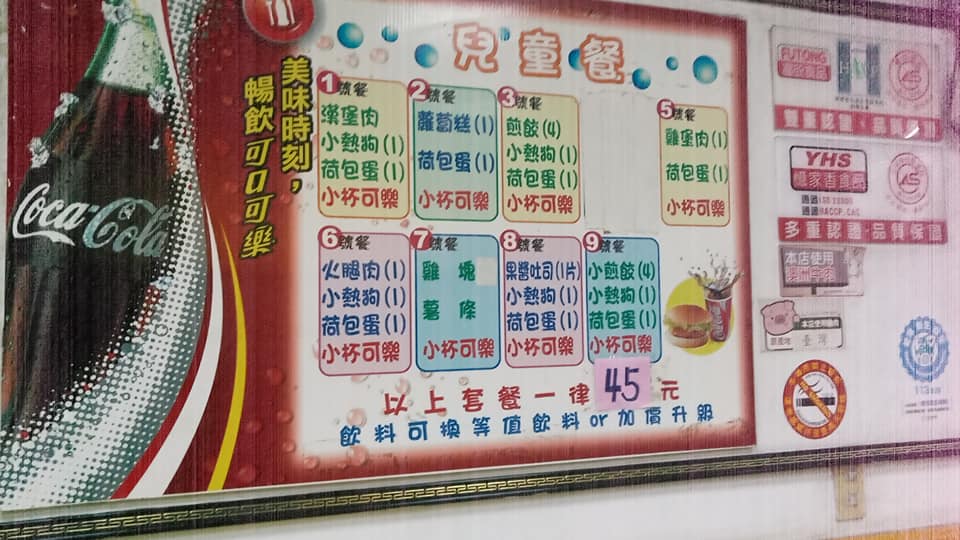 Coca-Cola
美味時刻，
暢飲可口可樂
兒童餐
1號餐
漢堡肉
小熱狗(1)
荷包蛋(1)
小杯可樂
2號餐
蘿蔔糕(1)
荷包蛋(1)
小杯可樂
3號餐
煎餃(4)
小熱狗(1)
荷包蛋(1)
小杯可樂
5號餐
雞堡肉(1)
荷包蛋(1)
小杯可樂
6號餐
火腿肉(1)
小熱狗(1)
荷包蛋(1)
小杯可樂
7號餐
雞塊
薯條
小杯可樂
8號餐
果醬吐司(1片)
小熱狗(1)
荷包蛋(1)
小杯可樂
9號餐
小煎餃(4)
小熱狗(1)
荷包蛋(1)
小杯可樂
以上套餐一律45元
飲料可換等值飲料or加價升級
FUTONG
YHS
憶家香食品
通過ISO 22000
通過HACCP.CAS
多重認證·品質保證
本店使用
澳洲牛肉
本店使用豬肉
原產地
臺灣
113